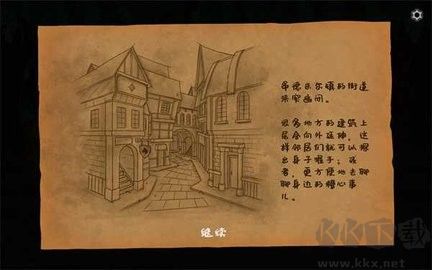 昂德瓦尔镇的街道
狭窄幽闭。
很多地方的建筑上
层会向外延伸，这
样邻居们就可以探
出身子握手；或
者，更方便地去聊
聊身边的糟心事
儿。
继续
KK下载
www.kkx.net